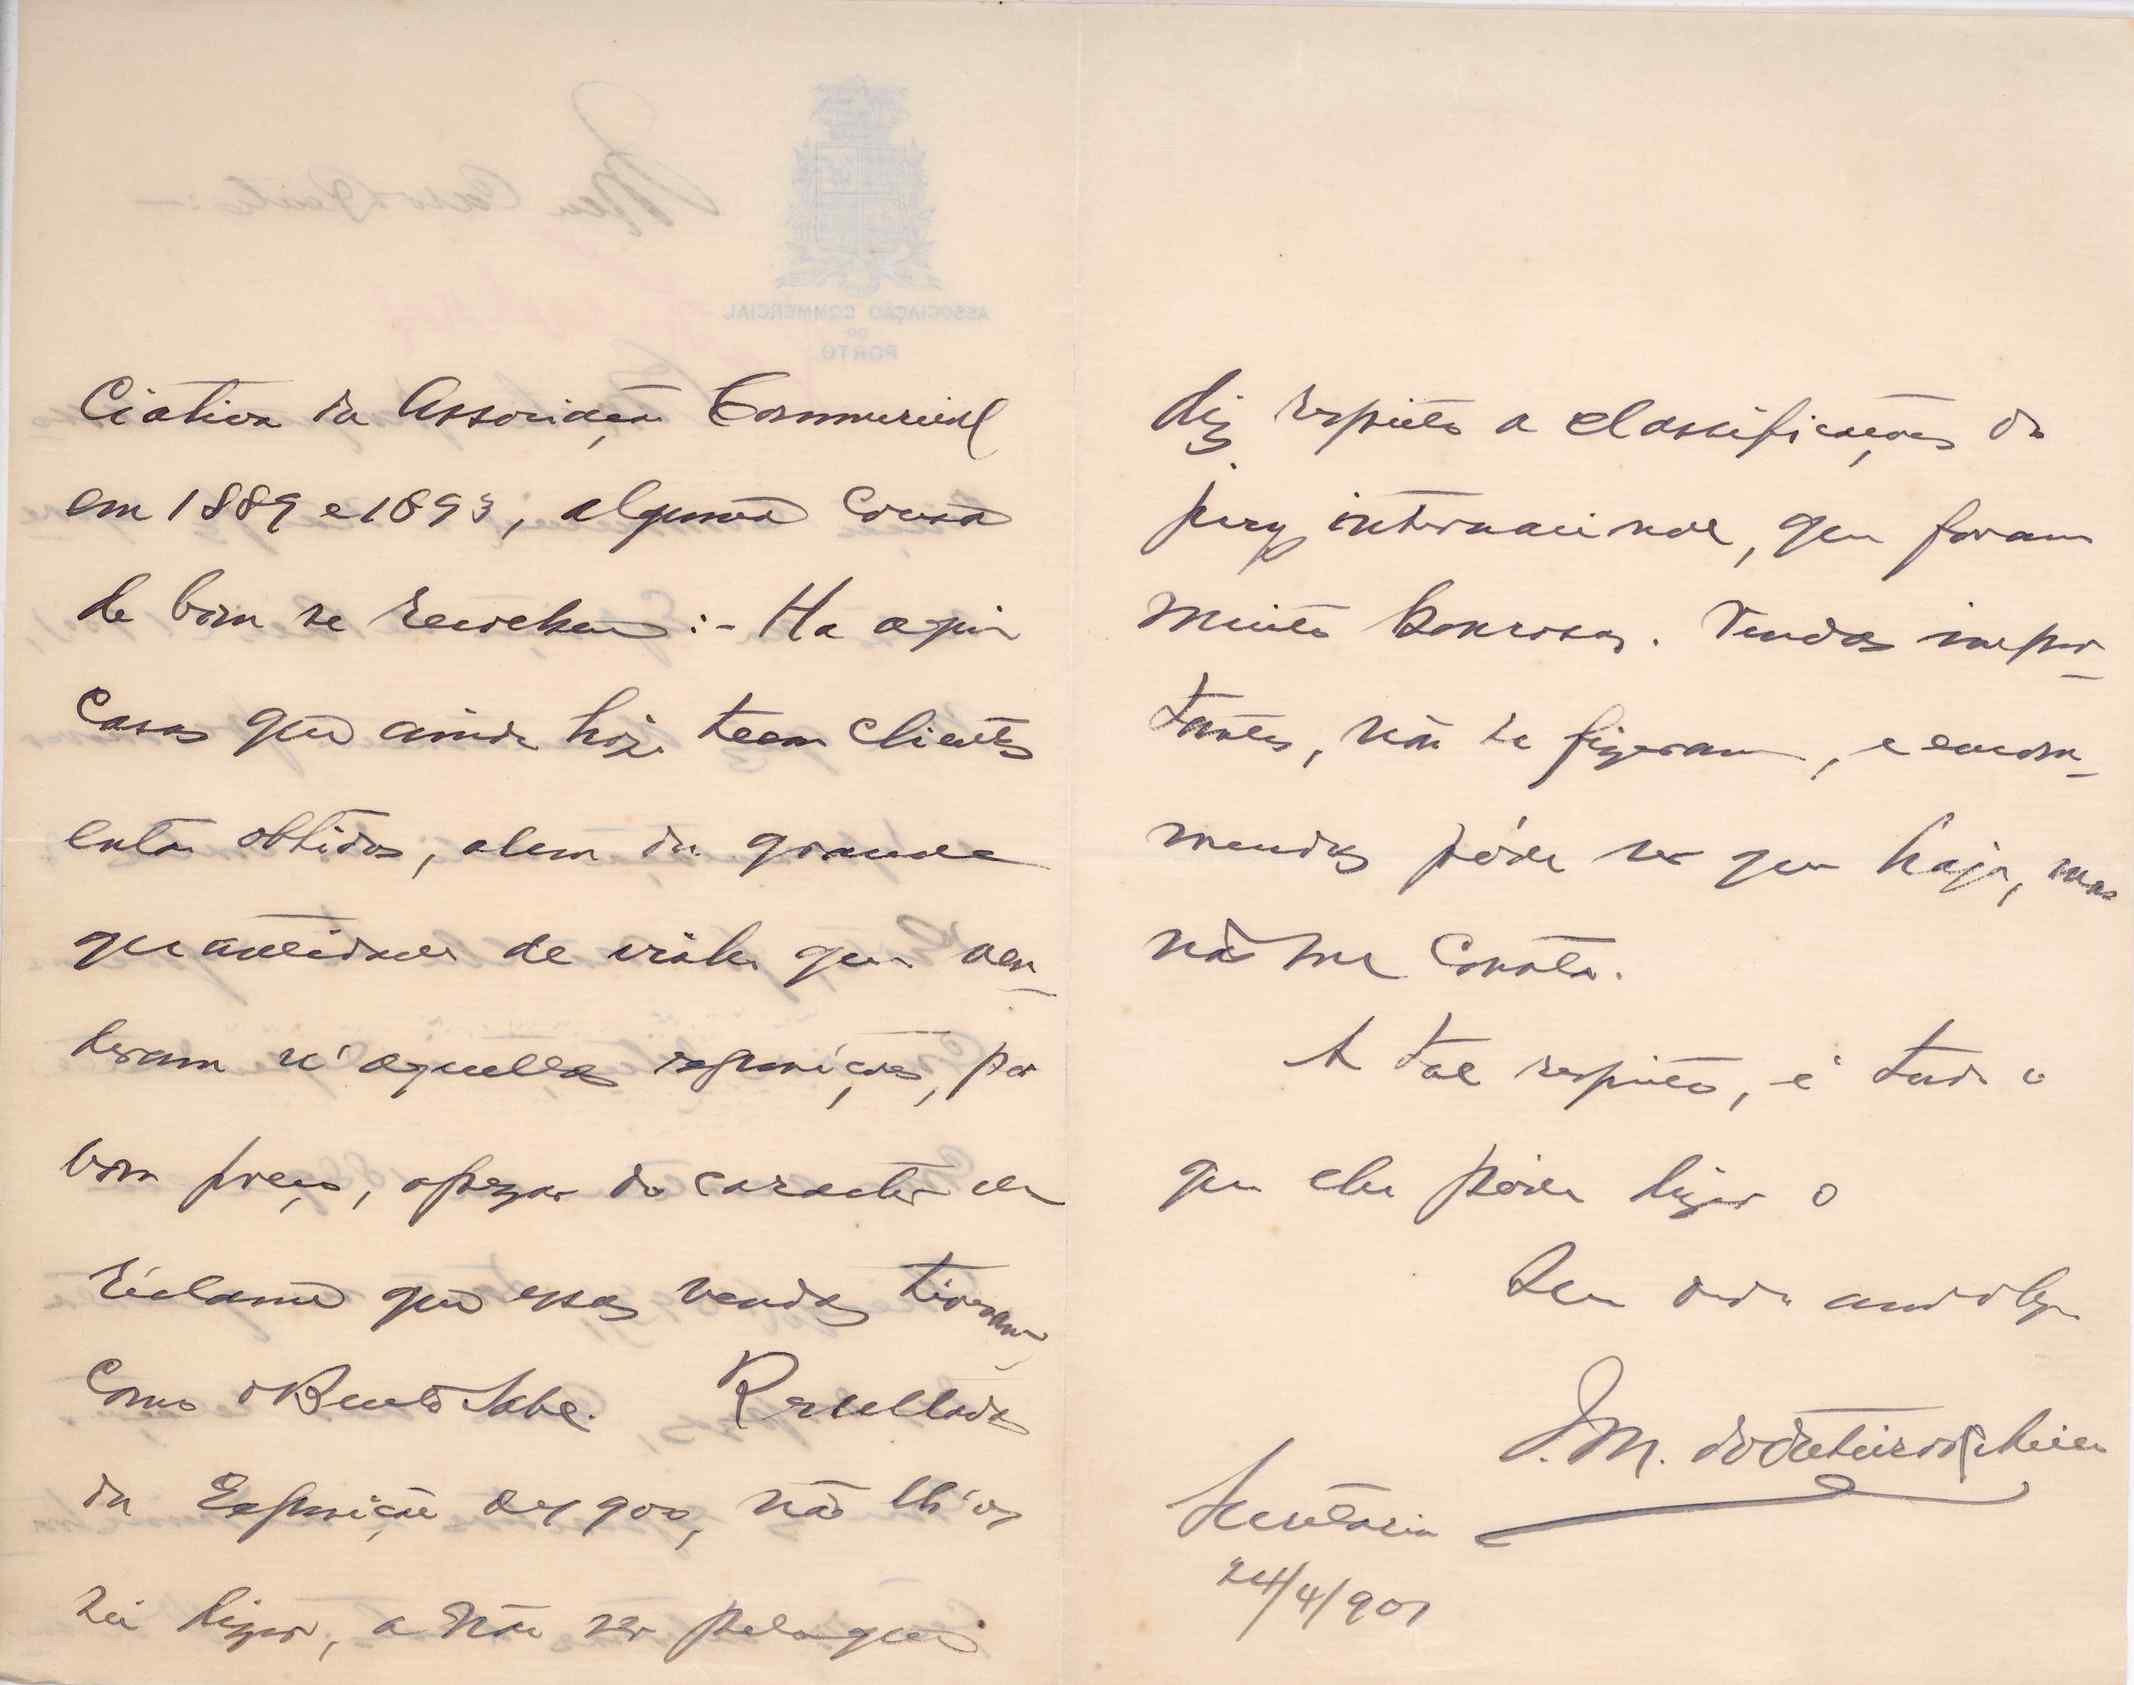 ciativa da Associação Commercial
em 1889 e 1893, alguma cousa
de bom se recebeu :- Ha aqui
casas que ainda hoje teem clientes
então obtidos, alem da grande
quantidade de vinho que ven-
deram n'aquellas exposições, por
bom preço, apezar do caracter de
réclame que essas vendas tiveram,
como o Bento sabe. Resultados
da Exposição de 1900, não lh'os
sei dizer, a não ser pelo que
diz respeito a classificações do
jury internacional, que foram
muito honrosas. Vendas impor-
tantes, não se fizeram, e encom-
mendas póde ser que haja, mas
não me consta.
A tal respeito, é tudo o
que lhe póde dizer o
Seu
J. M.
Secretaria
24/4/901
ASSOCIAÇÃO COMMERCIAL
DO
PORTO
Meu Caro